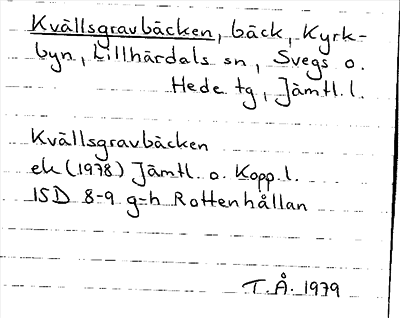 Kvällsgravbäcken, bäck, Kyrk-
byn, Lillhärdals sn, Svegs o.
Hede tg, Jämtl. l.
Kvällsgravbäcken
ek (1978) Jämtl. o. Kopp. l.
15D 8-9 g-h Rottenhållan
T.Å. 1979